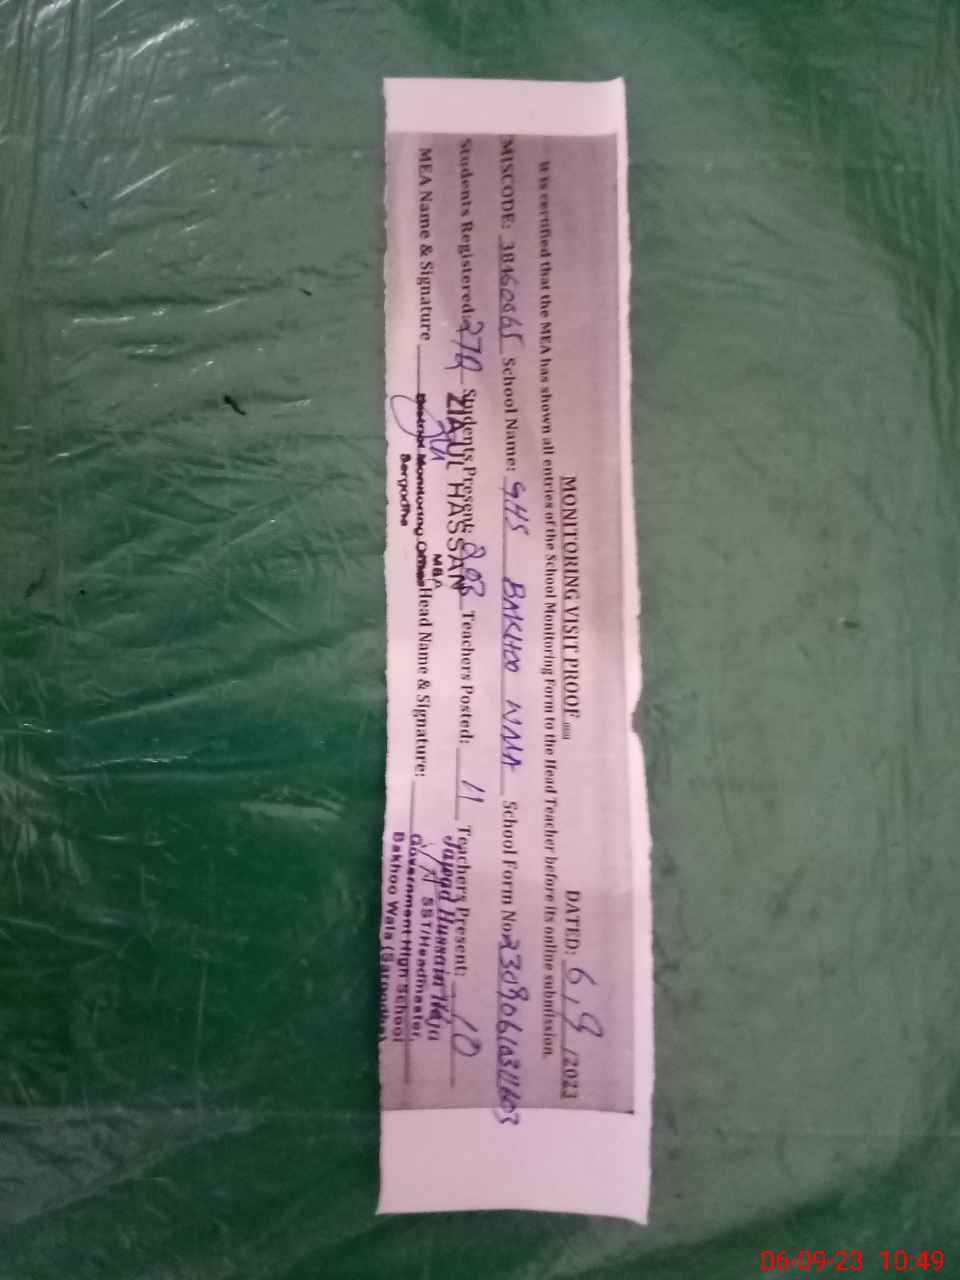 MONITORING VISIT PROOF
DATED: 6,9/2023
It is certified that the MEA has shown all entries of the School Monitoring Form to the Head Teacher before its online submission.
EMISCODE: 38460065 School Name: GHS BAKHOO NAAA School Form No
Students Registered: Students Present: 203 Teachers Posted: 11 Teachers Present: 10
ZIA UL HASSAN
MEA
MEA Name & Signature Head Name & Signature:
District Monitoring Officer
Sargodha
Hussain
SST/Headmaster,
Government High School
Bakhoo Wala (Sargodha)
06-09-23 10:49